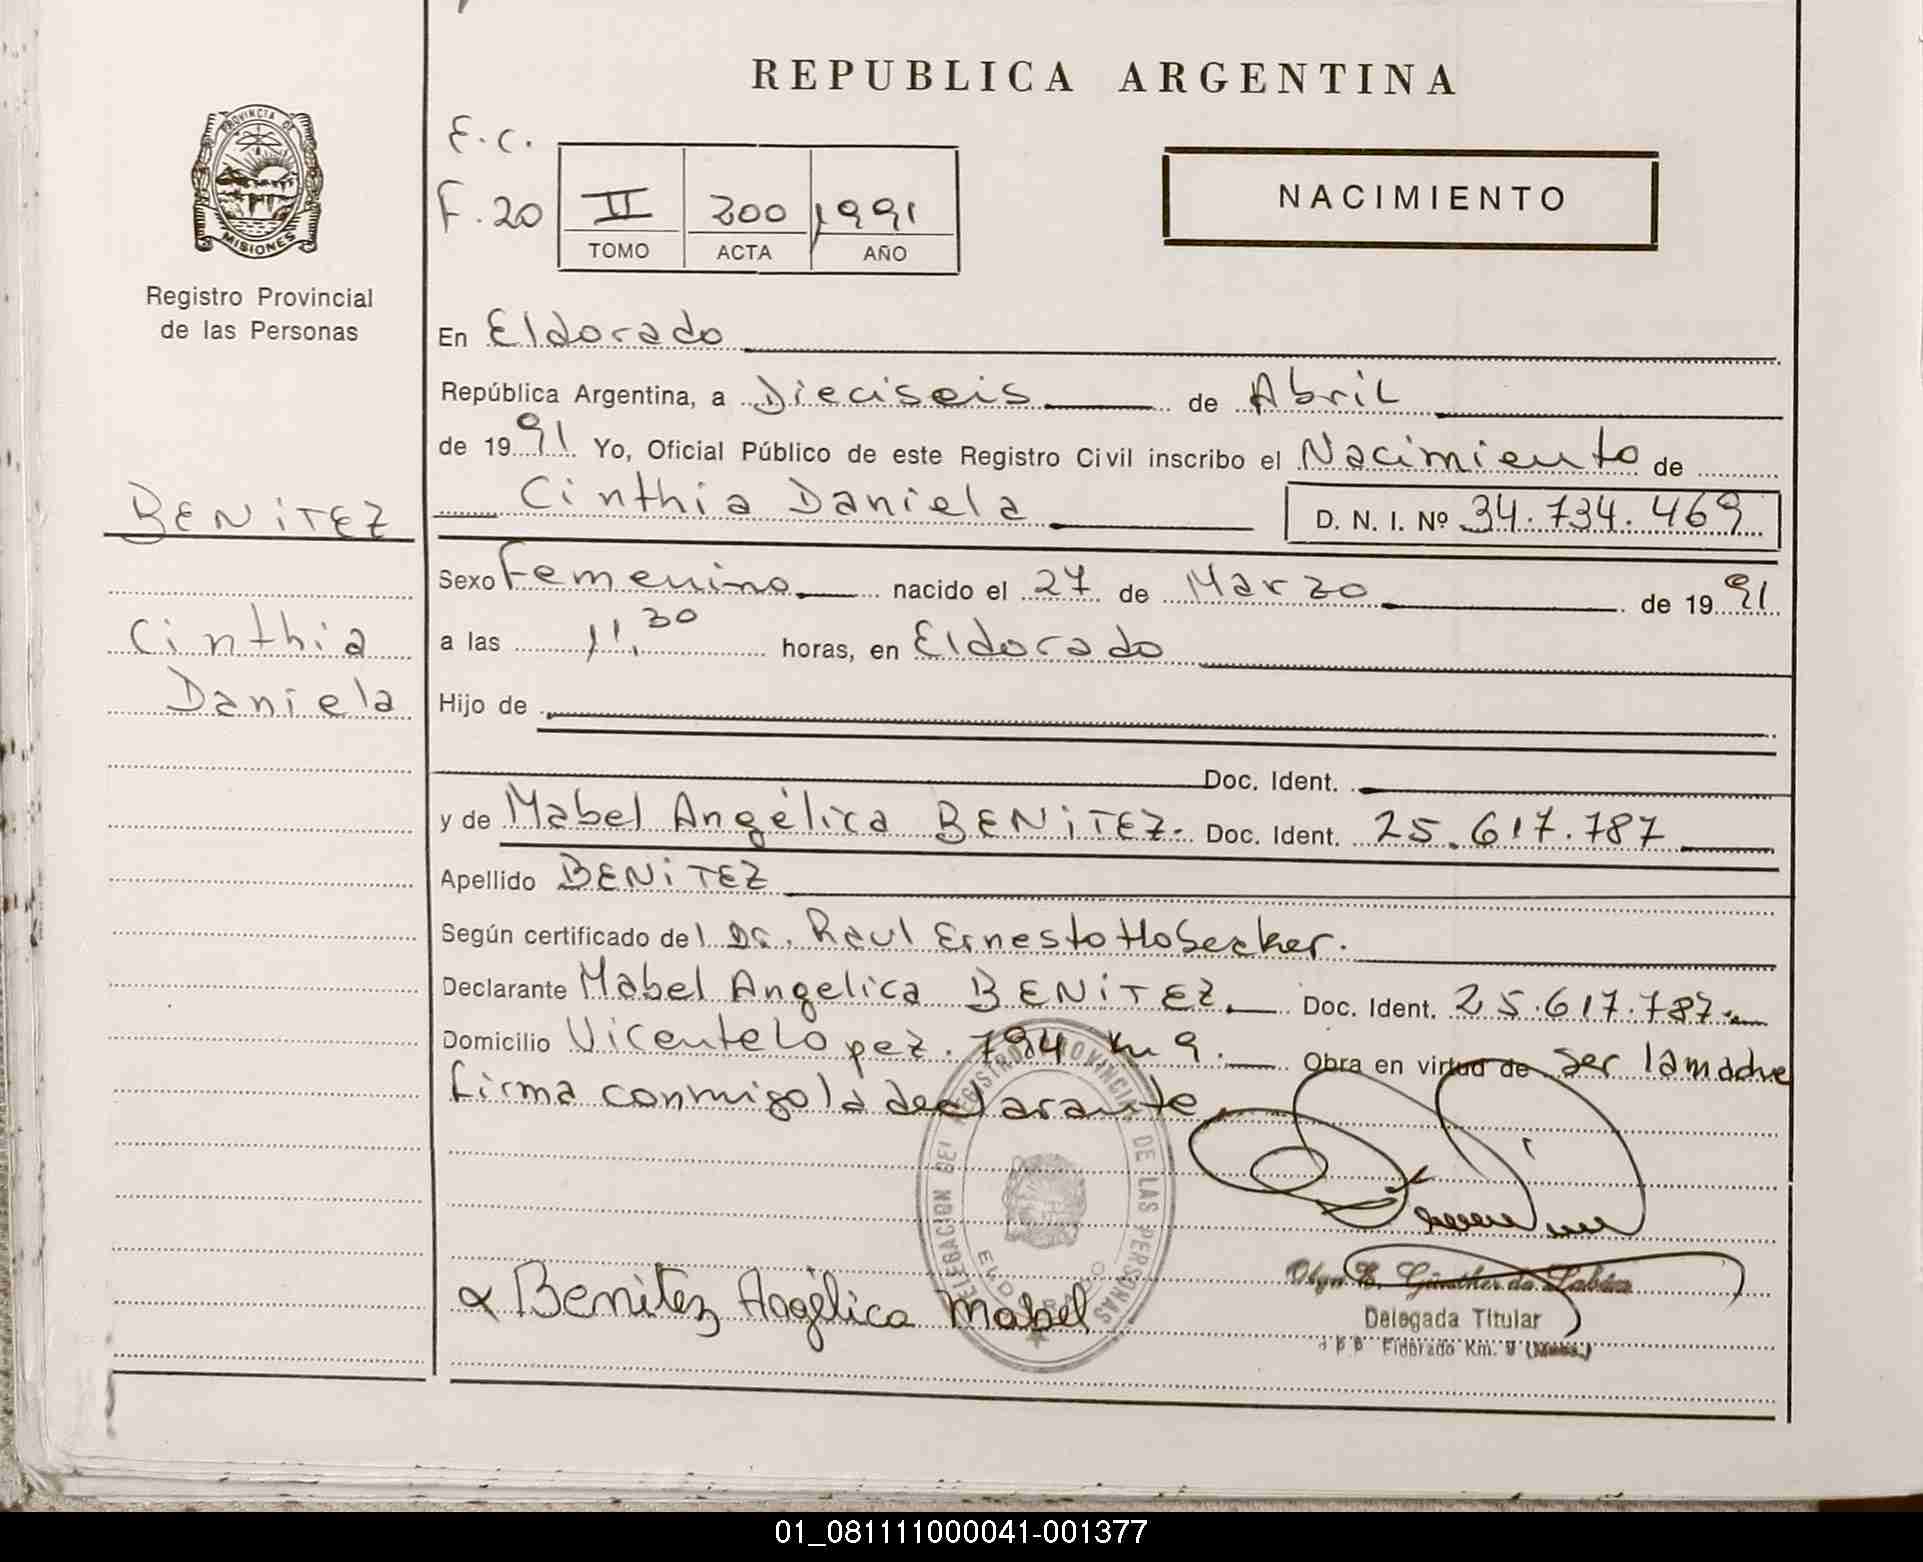 REPUBLICA ARGENTINA
PROVINCIA DE
MISIONES
Registro Provincial
de las Personas
E.C.
F.20
II 200 1991
TOMO ACTA AÑO
NACIMIENTO
En Eldorado
República Argentina, a Dieciseis de Abril
de 1991 Yo, Oficial Público de este Registro Civil inscribo el Nacimiento de
Cinthia Daniela D. N. I. Nº 34.734.469
BENiTEZ
Cinthia
Daniela
Sexo Femenino nacido el 27 de Marzo de 1991
a las 11.30 horas, en Eldorado
Hijo de
Doc. Ident.
y de Mabel Angélica BENiTEZ. Doc. Ident. 25.617.787
Apellido BENiTEZ
Según certificado del Dr. Raul Ernesto Hobecker.
Declarante Mabel Angelica BENiTEZ. Doc. Ident. 25.617.787.
Domicilio Vicente Lopez. 794 Km 9. Obra en virtud de ser la madre
firma conmigo la declarante.
DELEGACION DEL REGISTRO PROVINCIAL DE LAS PERSONAS
ELDORADO
Benitez Angélica Mabel
Delegada Titular
Eldorado Km. 9 (Mnes.)
01_081111000041-001377